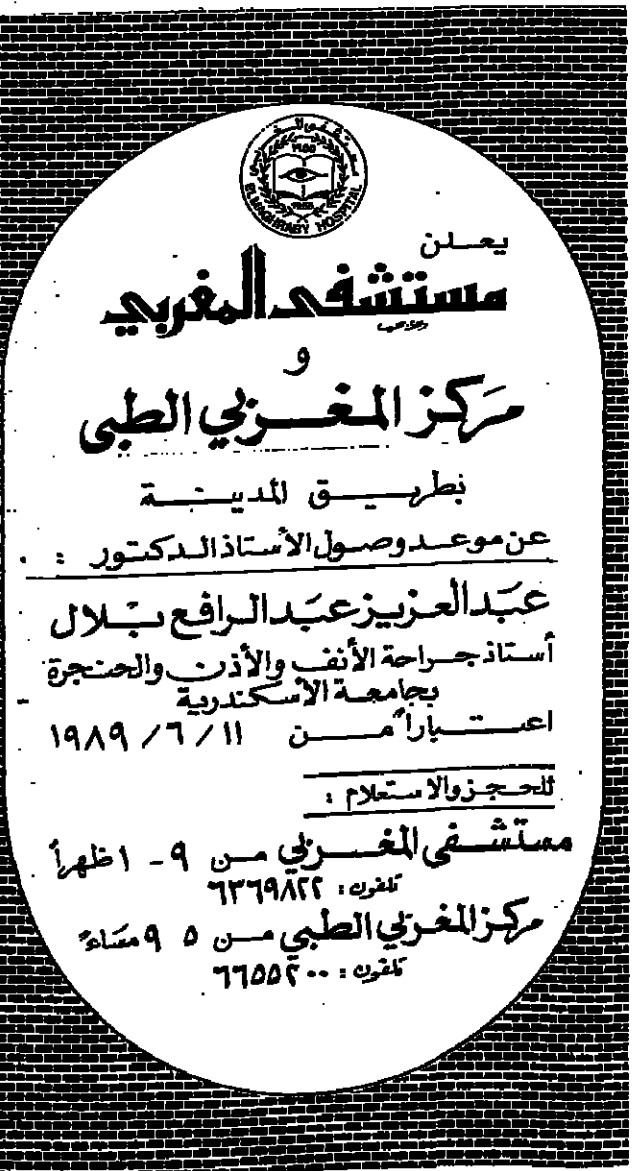 مستشفى المغربي
1955
ELMAGHRABY HOSPITAL
يعلن
مستشفى المغربي
و
مركز المغربي الطبى
بطريق المدينة
عن موعد وصول الأستاذ الدكتور :
عبد العزيز عبد الرافع بلال
أستاذ جراحة الأنف والأذن والحنجرة
بجامعة الأسكندرية
اعتباراً من ١١ / ٦ / ١٩٨٩
للحجز والاستعلام :
مستشفى المغربي من ٩ - ١ ظهراً
تلفون : ٦٣٦٩٨٢٢
مركز المغربي الطبي من ٥ ٩ مساءً
تلفون : ٦٦٥٥٢٠٠